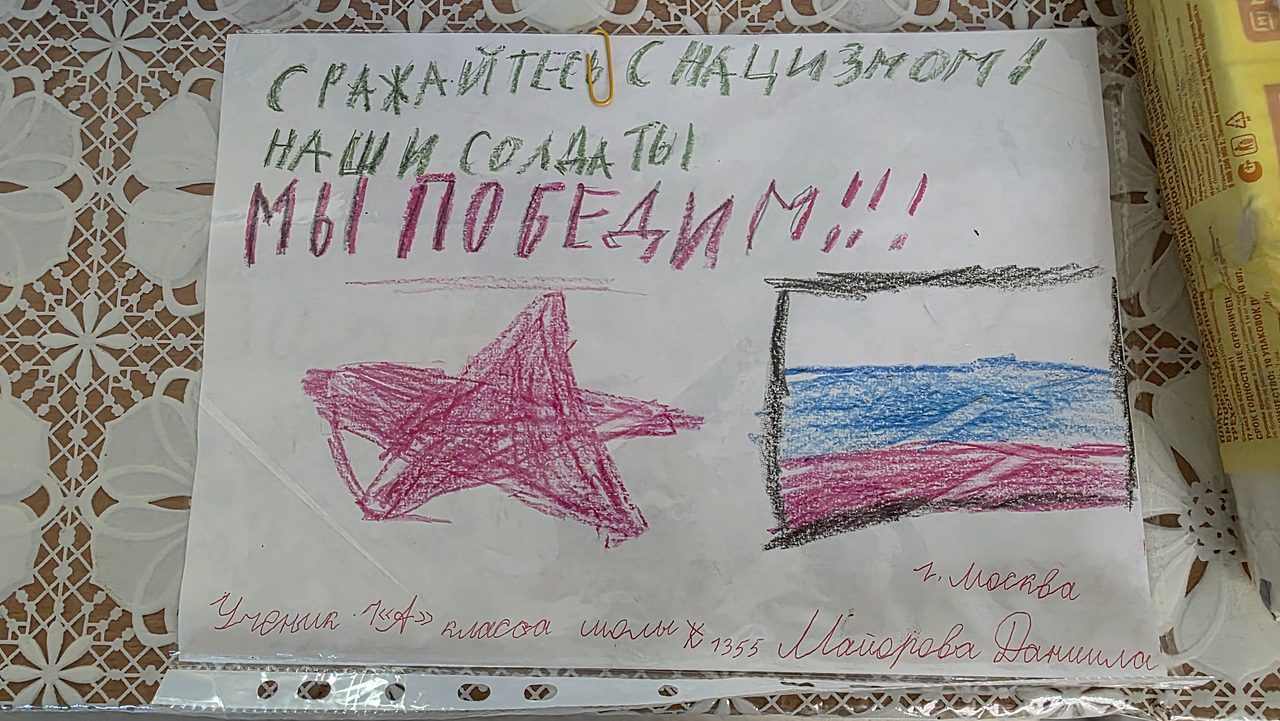 СРАЖАЙТЕСЬ С НАЦИЗМОМ!
НАШИ СОЛДАТЫ
МЫ ПОБЕДИМ!!!
г. Москва
Ученик 1«А» класса школы № 1355 Майорова Даниила